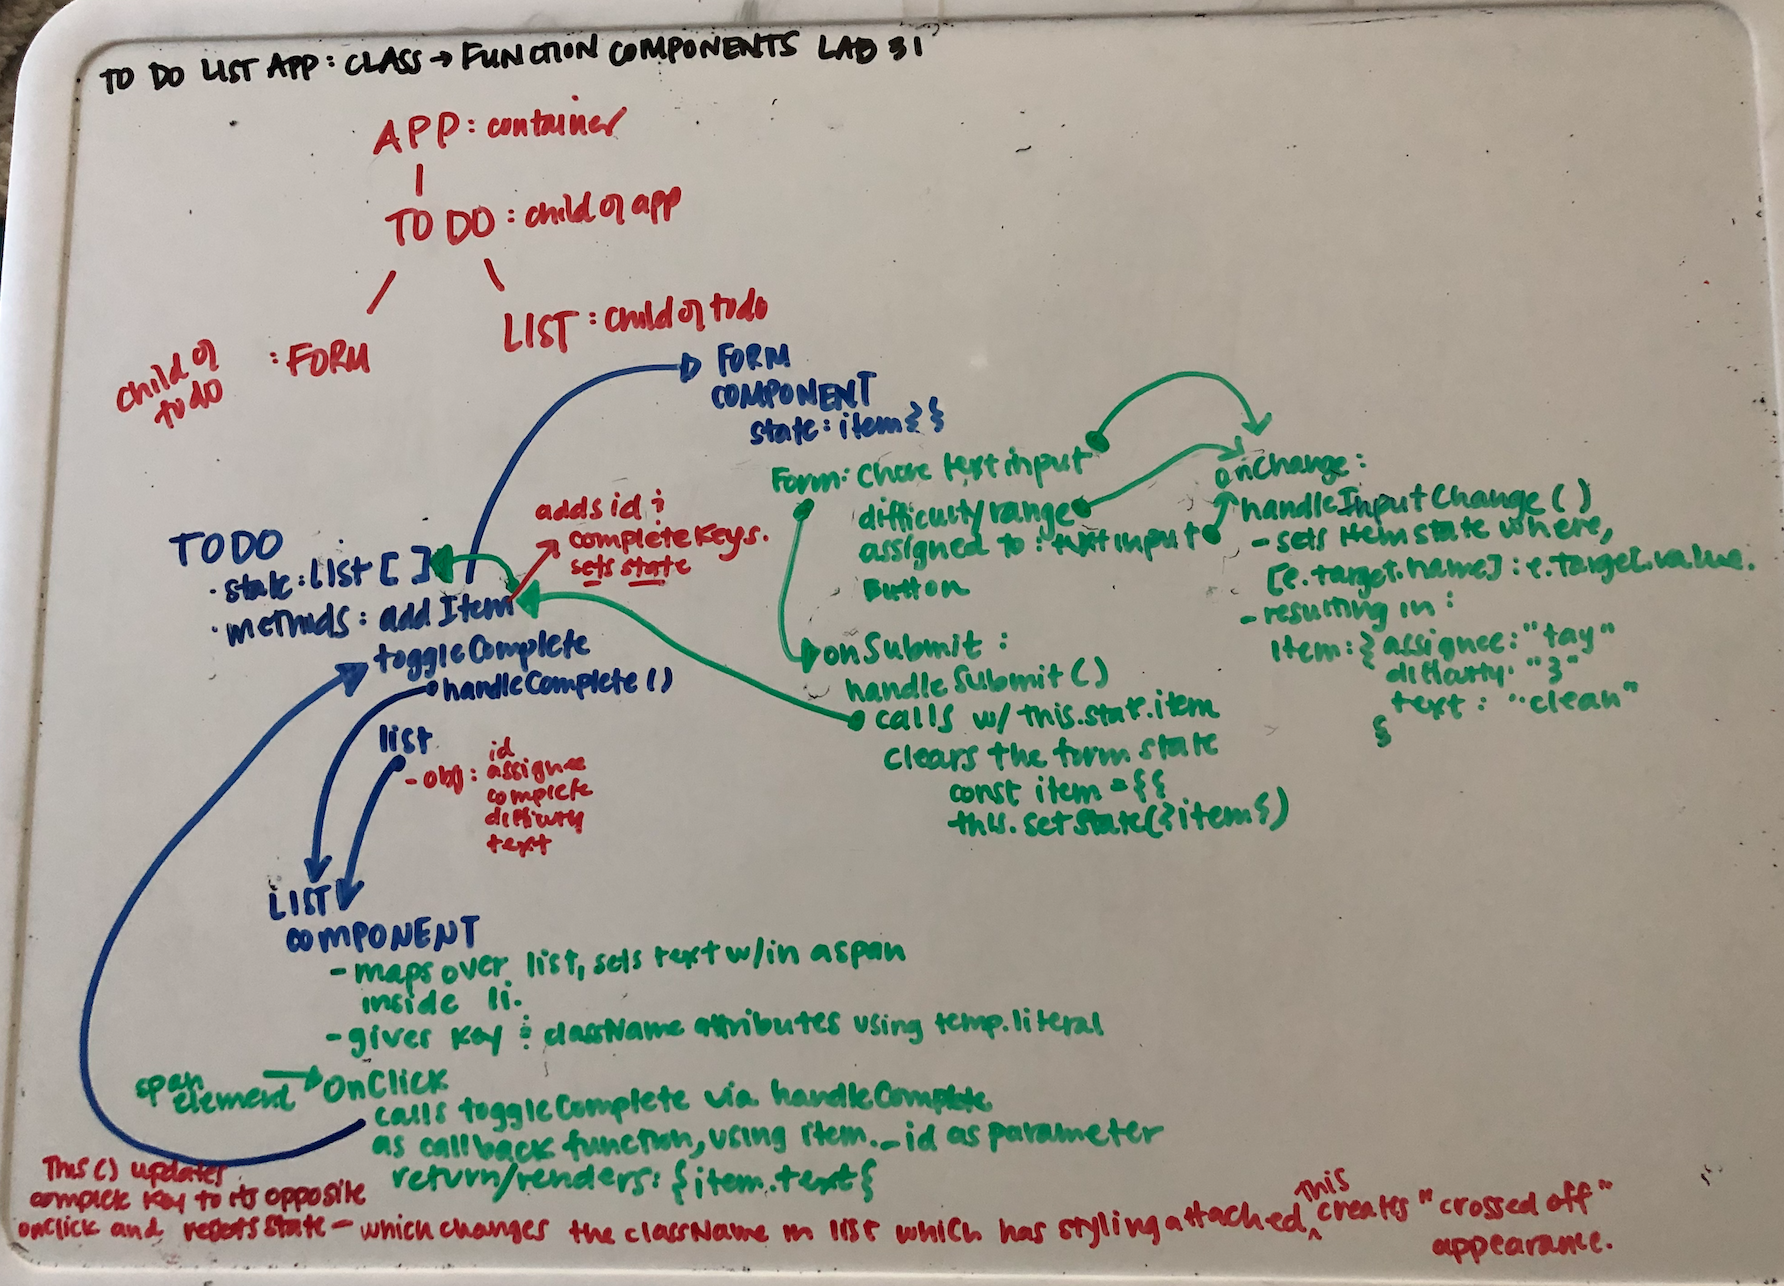 TO DO LIST APP: CLASS → FUNCTION COMPONENTS LAB 31
APP: container
TO DO: child of app
LIST: child of todo
child of
todo
: FORM
FORM
COMPONENT
state: item{}
Form: Chore text input
difficulty/range
assigned to: text input
Button
onChange:
handleInputChange()
- sets item state where,
[e.target.name]: e.target.value.
- resulting in:
item: { assignee: "tay"
difficulty: "3"
text: "clean"
}
onSubmit:
handleSubmit()
calls w/ this.state.item
clears the form state
const item = {}
this.setState({item})
adds id &
complete keys.
sets state
TODO
· state: List []
· methods: add Item
toggleComplete
handleComplete()
list
- obj: id
assignee
complete
difficulty
text
LIST
COMPONENT
- maps over list, sets text w/in a span
inside li.
- gives key & className attributes using temp. literal
span
element → OnClick
calls toggleComplete via handleComplete
as callback function, using item._id as parameter
return/renders: {item.text}
This () updates
complete key to its opposite
onClick and resets state - which changes the className in list which has styling attached, this creates "crossed off"
appearance.